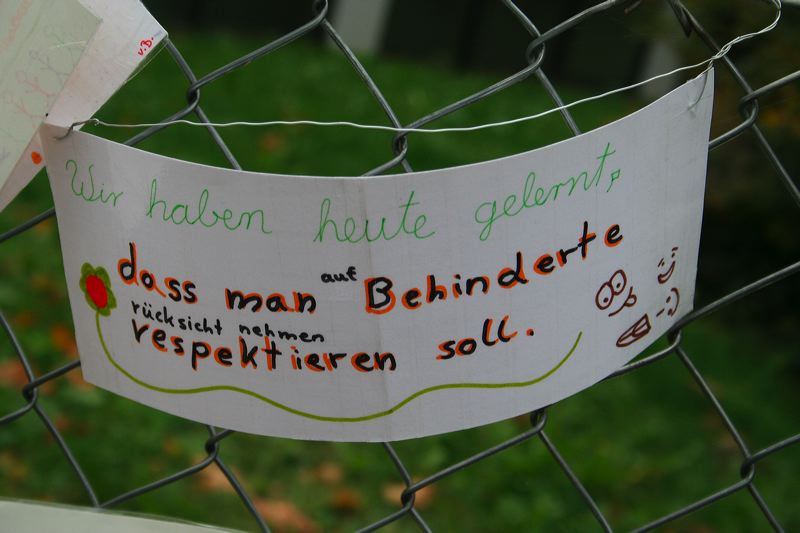 v.B.
Wir haben heute gelernt,
dass man auf Behinderte
rücksicht nehmen
respektieren soll.